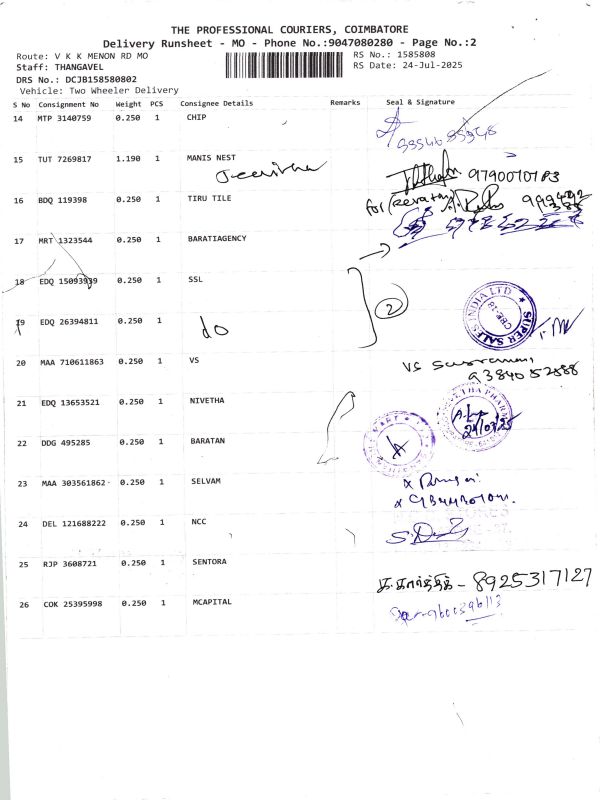 THE PROFESSIONAL COURIERS, COIMBATORE
Delivery Runsheet - MO - Phone No.:9047080280 - Page No.:2
Route: V K K MENON RD MO
RS No.: 1585808
Staff: THANGAVEL
RS Date: 24-Jul-2025
DRS No.: DCJB158580802
Vehicle: Two Wheeler Delivery
S No Consignment No Weight PCS Consignee Details Remarks Seal & Signature
14 MTP 3140759 0.250 1 CHIP
15 TUT 7269817 1.190 1 MANIS NEST
16 BDQ 119398 0.250 1 TIRU TILE
17 MRT 1323544 0.250 1 BARATIAGENCY
18 EDQ 15093939 0.250 1 SSL
2
SUPER SALES INDIA LTD
CBE-18
19 EDQ 26394811 0.250 1
do
20 MAA 710611863 0.250 1 VS
VS
9384052888
21 EDQ 13653521 0.250 1 NIVETHA
22 DDG 495285 0.250 1 BARATAN
23 MAA 303561862 0.250 1 SELVAM
24 DEL 121688222 0.250 1 NCC
25 RJP 3608721 0.250 1 SENTORA
க.கார்த்திக் - 8925317127
26 COK 25395998 0.250 1 MCAPITAL